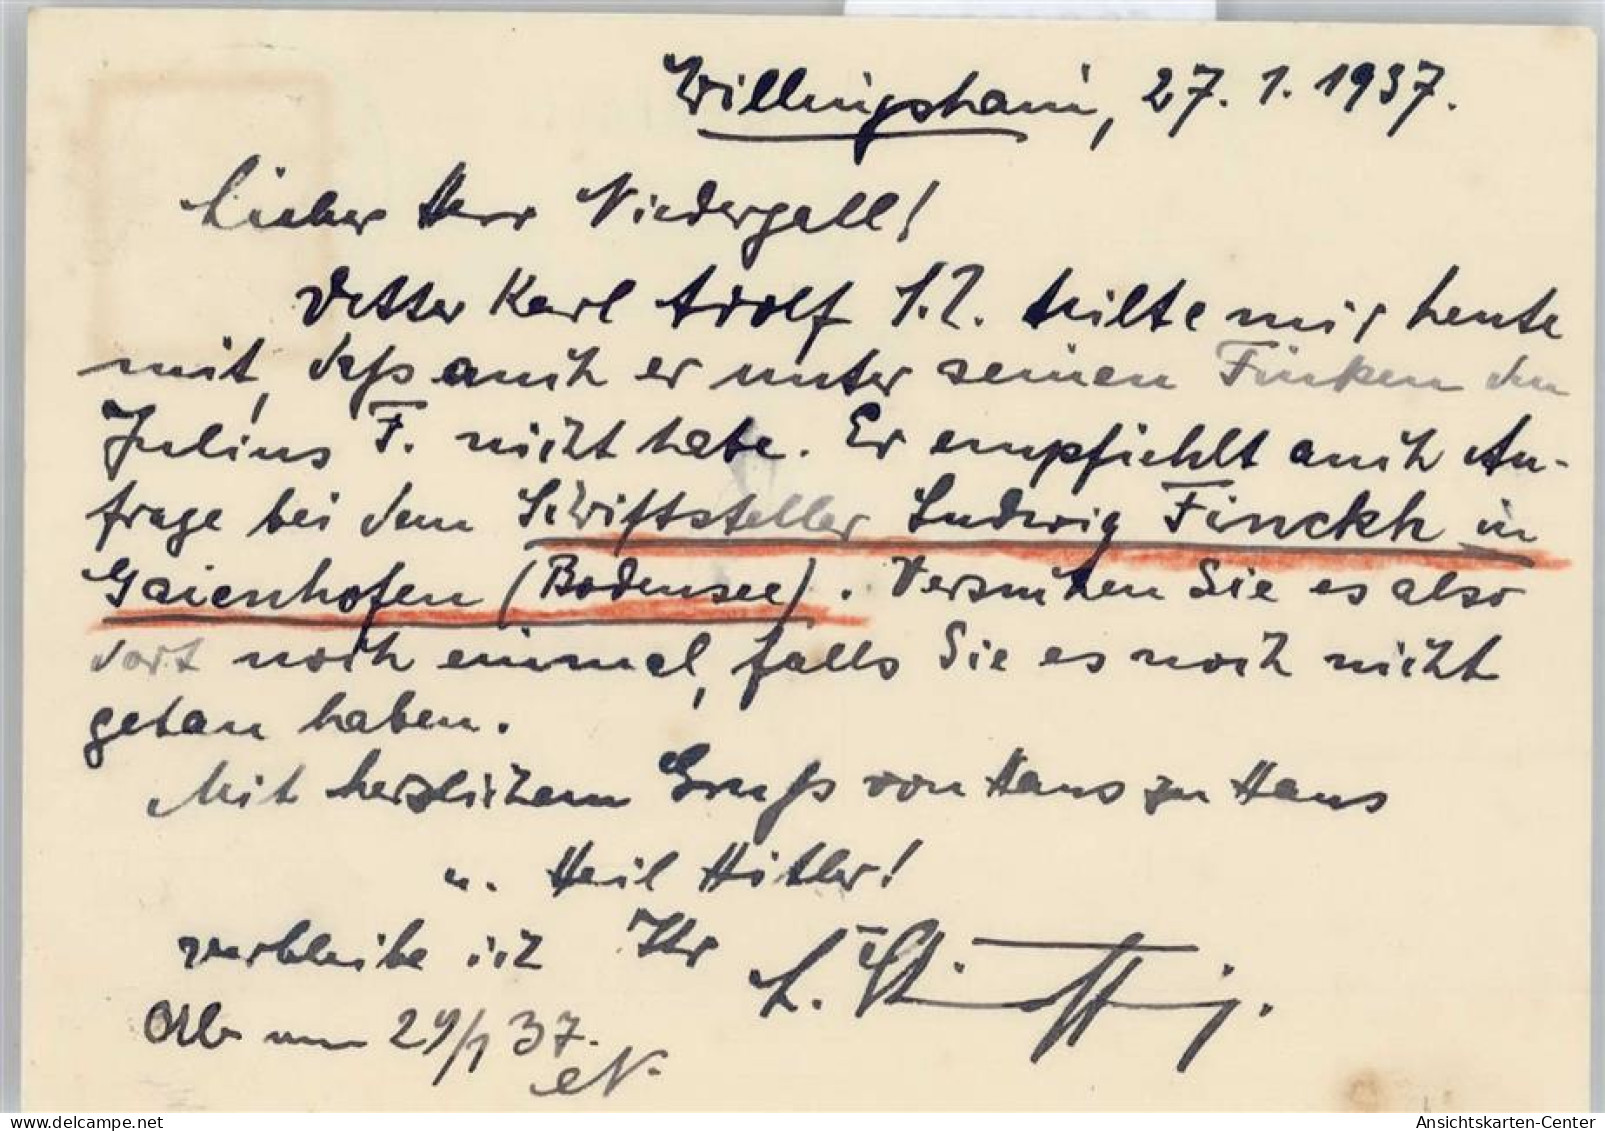 Willingshain, 27. 1. 1937.
Lieber Herr Niedergall!
Vetter Karl Adolf teilte mir heute
mit, daß auch er unter seinen Finken den
Julius F. nicht habe. Er empfiehlt auch An-
frage bei dem Schriftsteller Ludwig Finckh in
Gaienhofen (Bodensee). Versuchen Sie es also
dort noch einmal, falls Sie es noch nicht
getan haben.
Mit herzlichem Gruß von Haus zu Haus
u. Heil Hitler!
verbleibe ich Ihr L.
29/1 37.
N.
Ansichtskarten-Center